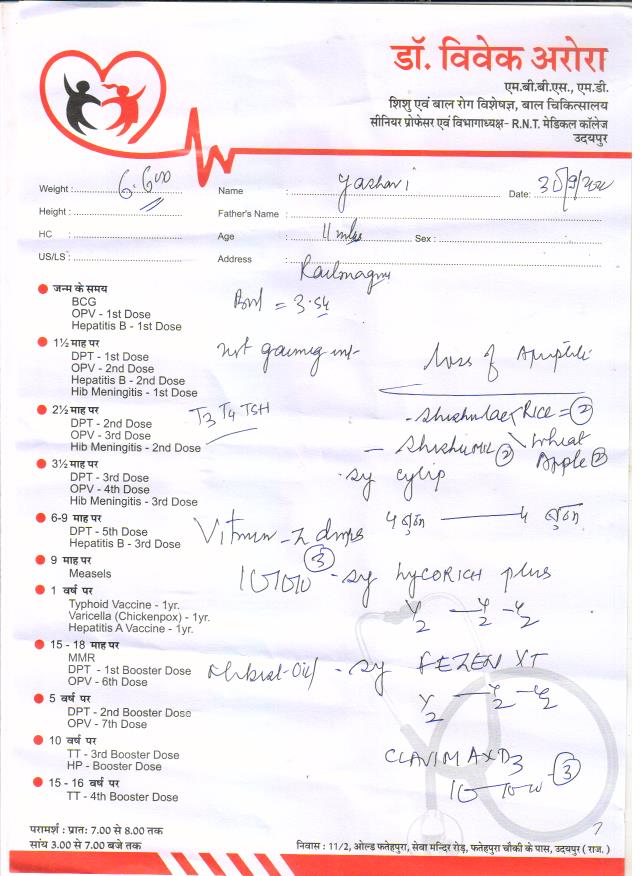 डॉ. विवेक अरोरा
एम.बी.बी.एस., एम.डी.
शिशु एवं बाल रोग विशेषज्ञ, बाल चिकित्सालय
सीनियर प्रोफेसर एवं विभागाध्यक्ष- R.N.T. मेडिकल कॉलेज
उदयपुर
Weight : 6.600 Name : Yashavi Date:
Height : Father's Name :
HC : Age : 11 Sex :
US/LS : Address :
जन्म के समय
BCG
OPV - 1st Dose
Hepatitis B - 1st Dose
= 3.5
1½ माह पर
DPT - 1st Dose
OPV - 2nd Dose
Hepatitis B - 2nd Dose
Hib Meningitis - 1st Dose
not gaining
loss of
2½ माह पर
DPT - 2nd Dose
OPV - 3rd Dose
Hib Meningitis - 2nd Dose
T3 T4 TSH
RICE = 2
2 Wheat
Apple 2
3½ माह पर
DPT - 3rd Dose
OPV - 4th Dose
Hib Meningitis - 3rd Dose
sy
6-9 माह पर
DPT - 5th Dose
Hepatitis B - 3rd Dose
drops
9 माह पर
Measels
3
sy HYCORICH plus
1 वर्ष पर
Typhoid Vaccine - 1yr.
Varicella (Chickenpox) - 1yr.
Hepatitis A Vaccine - 1yr.
15 - 18 माह पर
MMR
DPT - 1st Booster Dose
OPV - 6th Dose
- sy FEZEN XT
5 वर्ष पर
DPT - 2nd Booster Dose
OPV - 7th Dose
10 वर्ष पर
TT - 3rd Booster Dose
HP - Booster Dose
CLAVIMAX D3
3
15 - 16 वर्ष पर
TT - 4th Booster Dose
परामर्श : प्रातः 7.00 से 8.00 तक
सांय 3.00 से 7.00 बजे तक
निवास : 11/2, ओल्ड फतेहपुरा, सेवा मन्दिर रोड़, फतेहपुरा चौकी के पास, उदयपुर ( राज. )